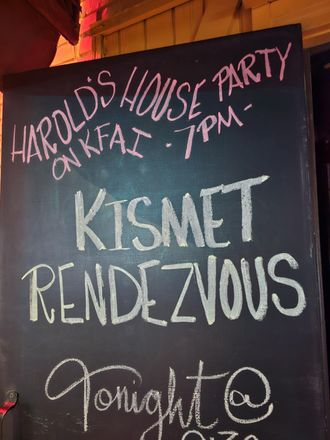 HAROLD'S HOUSE PARTY
ON KFAI · 7PM -
KISMET
RENDEZVOUS
Tonight @